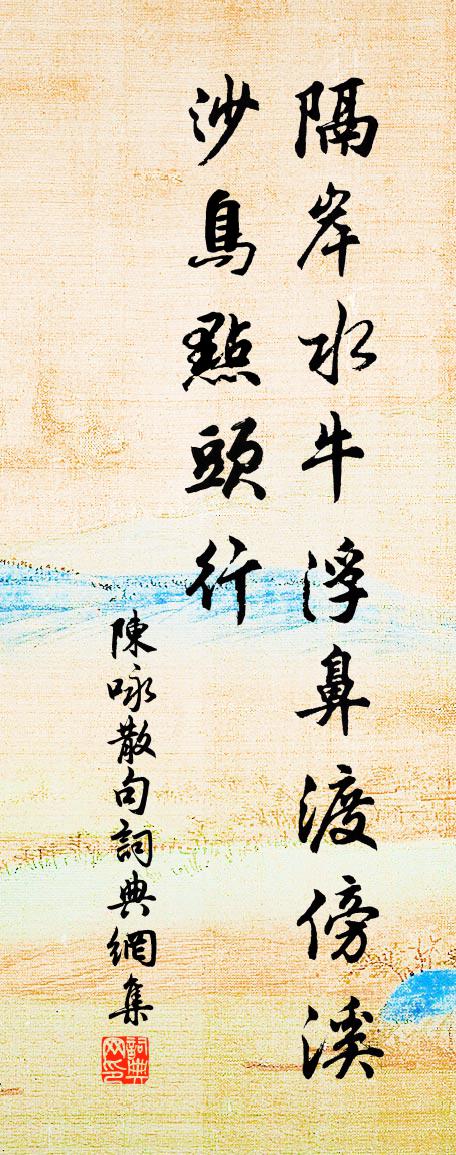 隔岸水牛浮鼻渡傍溪
沙鳥點頭行
陳咏散句詞典網集
詞典网印